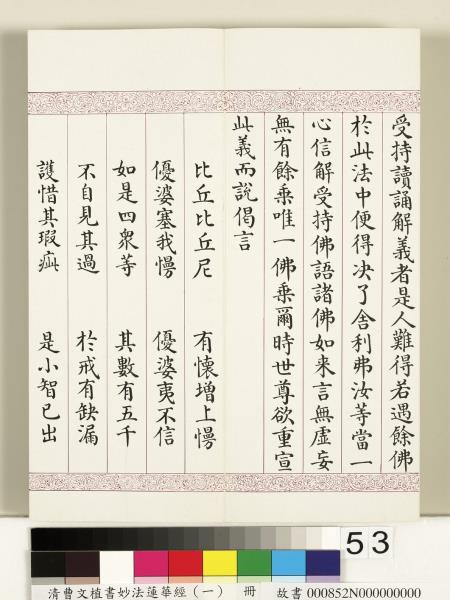 受持讀誦解義者是人難得若遇餘佛
於此法中便得决了舍利弗汝等當一
心信解受持佛語諸佛如来言無虛妄
無有餘乘唯一佛乘爾時世尊欲重宣
此義而說偈言
比丘比丘尼 有懷增上慢
優婆塞我慢 優婆夷不信
如是四衆等 其數有五千
不自見其過 於戒有缺漏
護惜其瑕疵 是小智已出
53
清曹文植書妙法蓮華經(一) 冊 故書 000852N000000000